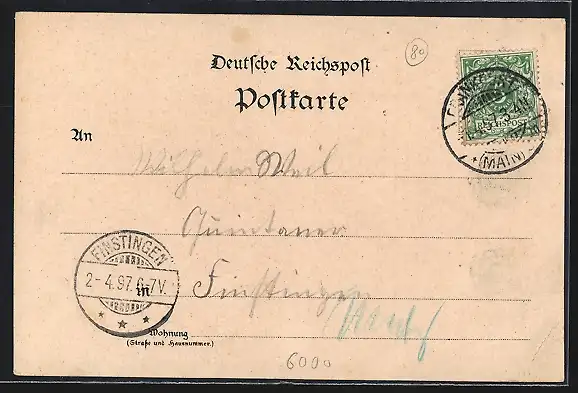 80
Deutsche Reichspost
Postkarte
REICHSPOST
(MAIN)
An
Wilhelm Weil
FINSTINGEN
2-4.97. 6-7V.
in
Finstingen
Wohnung
(Straße und Hausnummer.)
6000